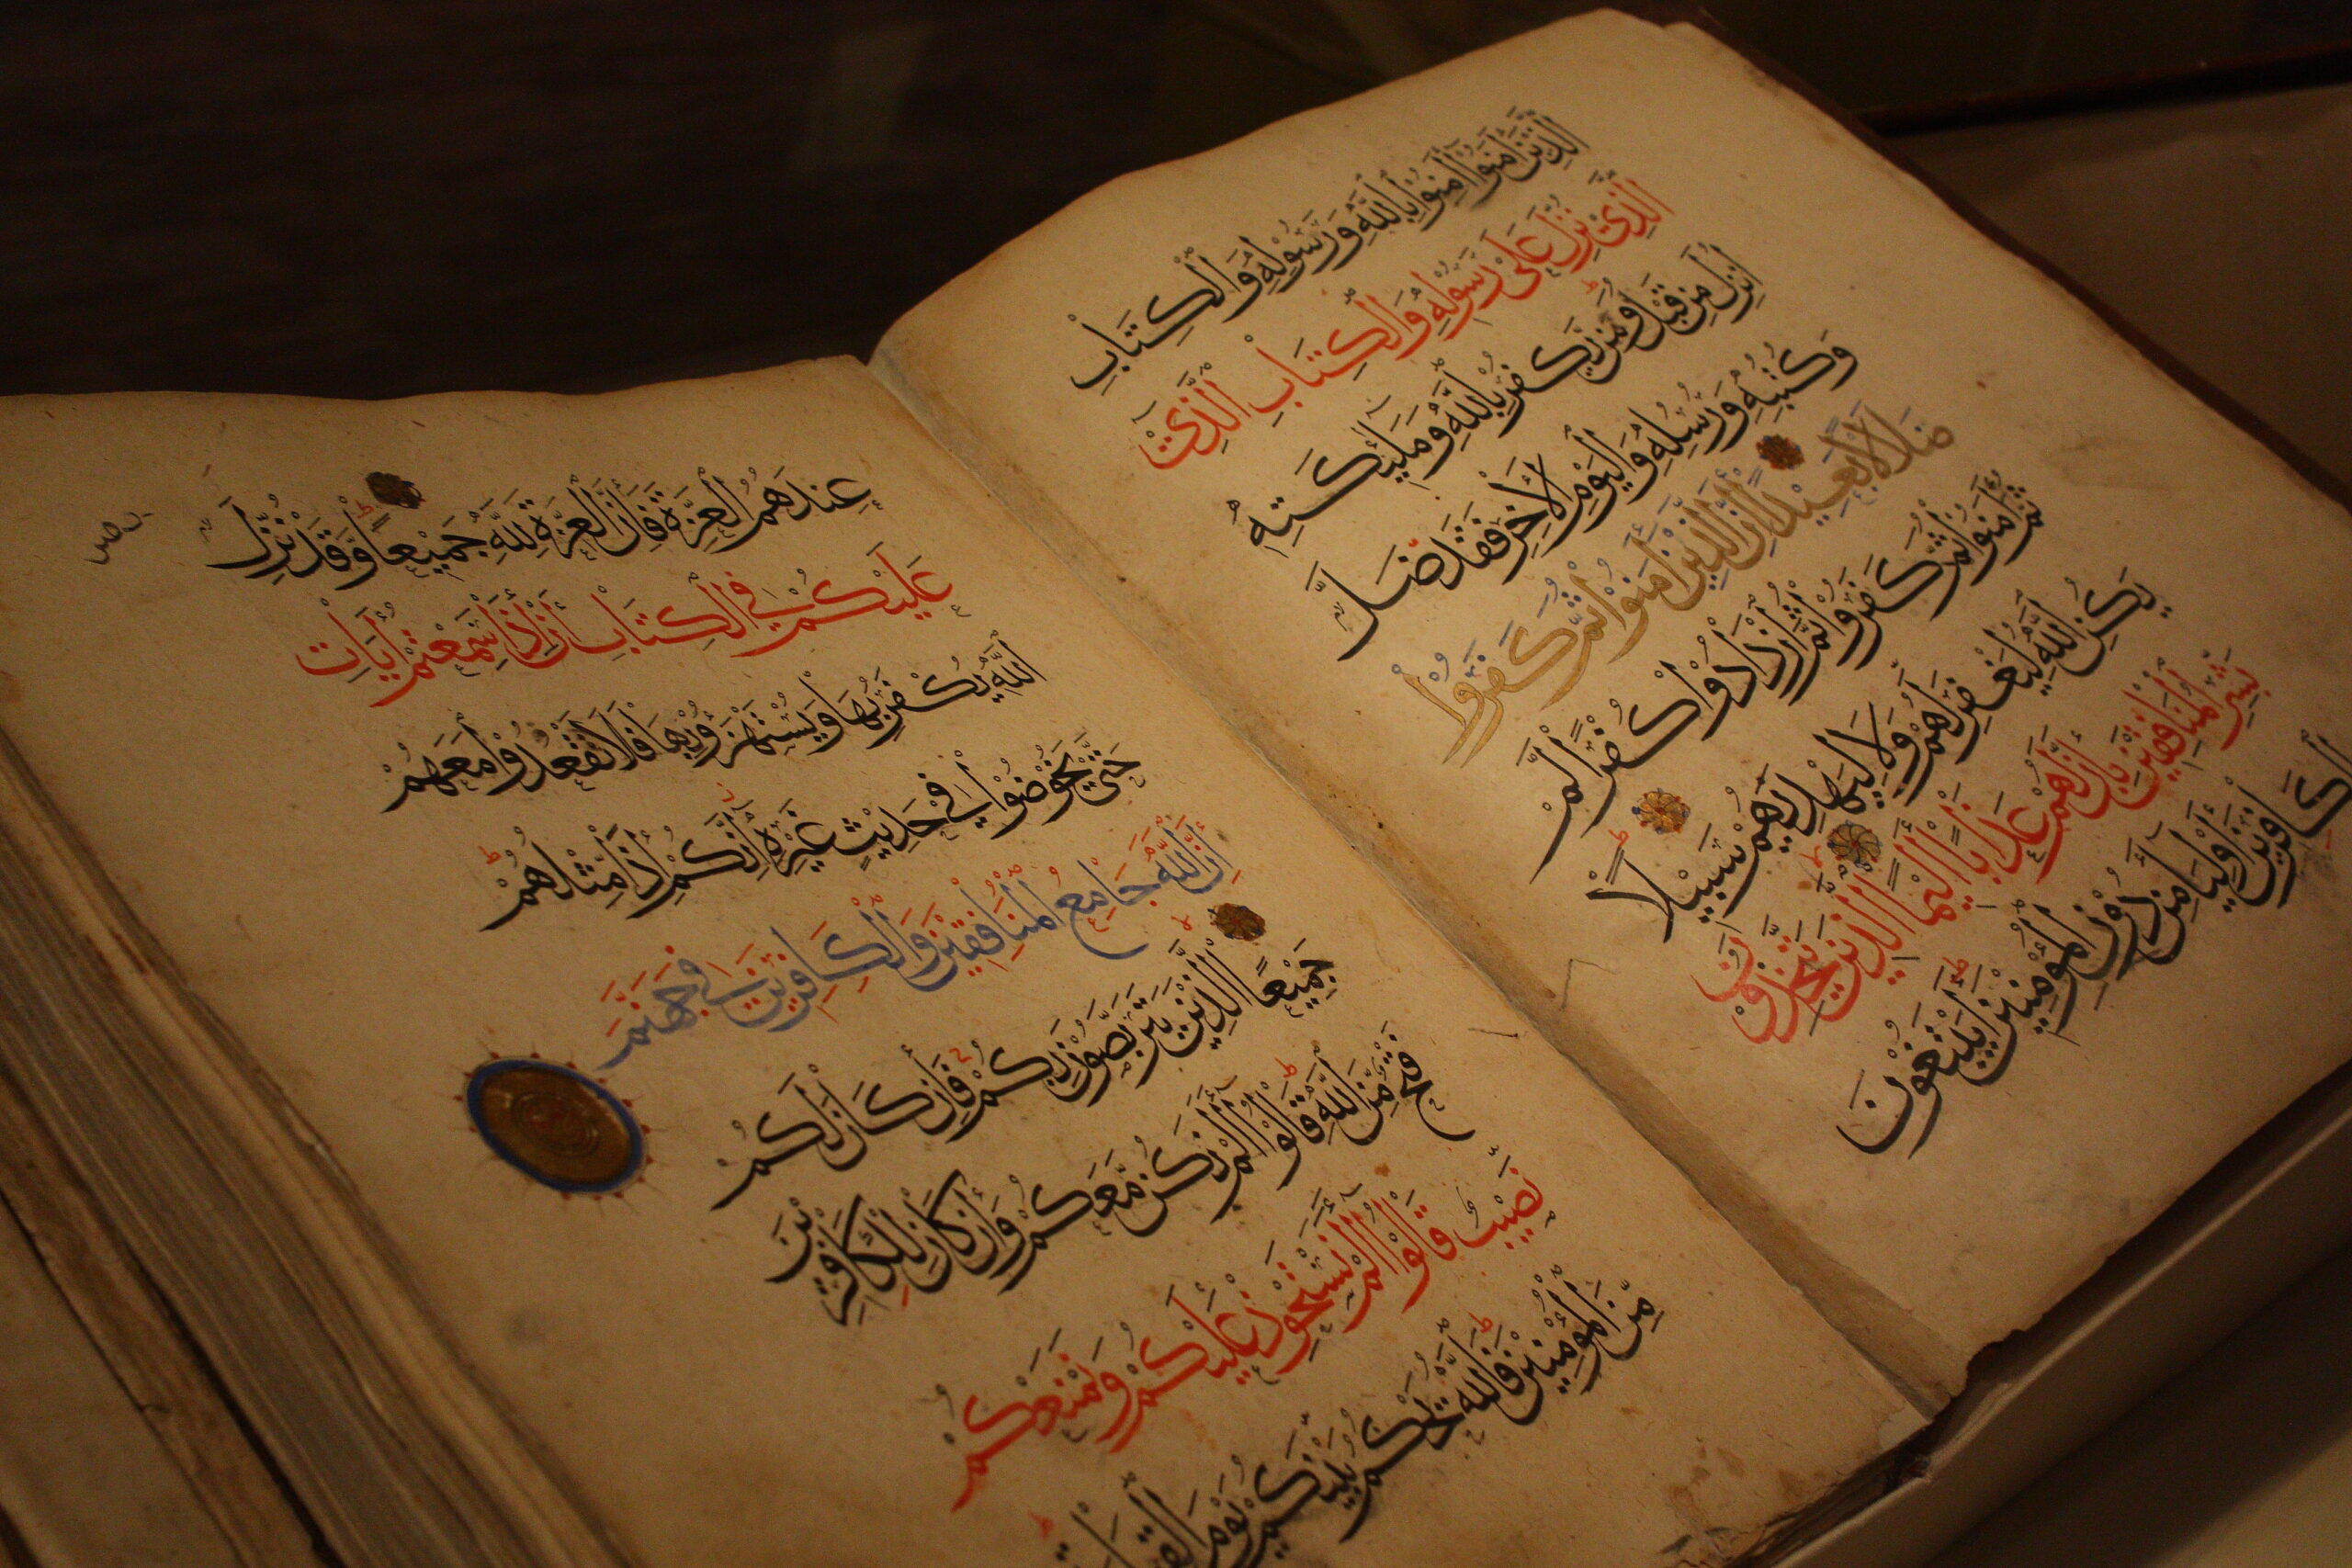 الَّذِينَ آمَنُوا آمِنُوا بِاللَّهِ وَرَسُولِهِ وَالْكِتَابِ
الَّذِي نَزَّلَ عَلَىٰ رَسُولِهِ وَالْكِتَابِ الَّذِي
أَنْزَلَ مِنْ قَبْلُ وَمَنْ يَكْفُرْ بِاللَّهِ وَمَلَئِكَتِهِ
وَكُتُبِهِ وَرُسُلِهِ وَالْيَوْمِ الْآخِرِ فَقَدْ ضَلَّ
ضَلَالًا بَعِيدًا إِنَّ الَّذِينَ آمَنُوا ثُمَّ كَفَرُوا
ثُمَّ آمَنُوا ثُمَّ كَفَرُوا ثُمَّ ازْدَادُوا كُفْرًا لَمْ
يَكُنِ اللَّهُ لِيَغْفِرَ لَهُمْ وَلَا لِيَهْدِيَهُمْ سَبِيلًا
بَشِّرِ الْمُنَافِقِينَ بِأَنَّ لَهُمْ عَذَابًا أَلِيمًا الَّذِينَ يَتَّخِذُونَ
الْكَافِرِينَ أَوْلِيَاءَ مِنْ دُونِ الْمُؤْمِنِينَ أَيَبْتَغُونَ
عِنْدَهُمُ الْعِزَّةَ فَإِنَّ الْعِزَّةَ لِلَّهِ جَمِيعًا وَقَدْ نَزَّلَ
عَلَيْكُمْ فِي الْكِتَابِ أَنْ إِذَا سَمِعْتُمْ آيَاتِ
اللَّهِ يُكْفَرُ بِهَا وَيُسْتَهْزَؤُ بِهَا فَلَا تَقْعُدُوا مَعَهُمْ
حَتَّى يَخُوضُوا فِي حَدِيثٍ غَيْرِهِ إِنَّكُمْ إِذًا مِثْلُهُمْ
إِنَّ اللَّهَ جَامِعُ الْمُنَافِقِينَ وَالْكَافِرِينَ فِي جَهَنَّمَ
جَمِيعًا الَّذِينَ يَتَرَبَّصُونَ بِكُمْ فَإِنْ كَانَ لَكُمْ
فَتْحٌ مِنَ اللَّهِ قَالُوا أَلَمْ نَكُنْ مَعَكُمْ وَإِنْ كَانَ لِلْكَافِرِينَ
نَصِيبٌ قَالُوا أَلَمْ نَسْتَحْوِذْ عَلَيْكُمْ وَنَمْنَعْكُمْ
مِنَ الْمُؤْمِنِينَ فَاللَّهُ يَحْكُمُ بَيْنَكُمْ يَوْمَ الْقِيَامَةِ